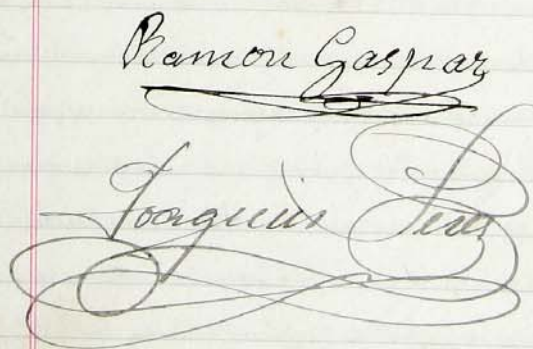 Ramon Gaspar
Joaquin Peres